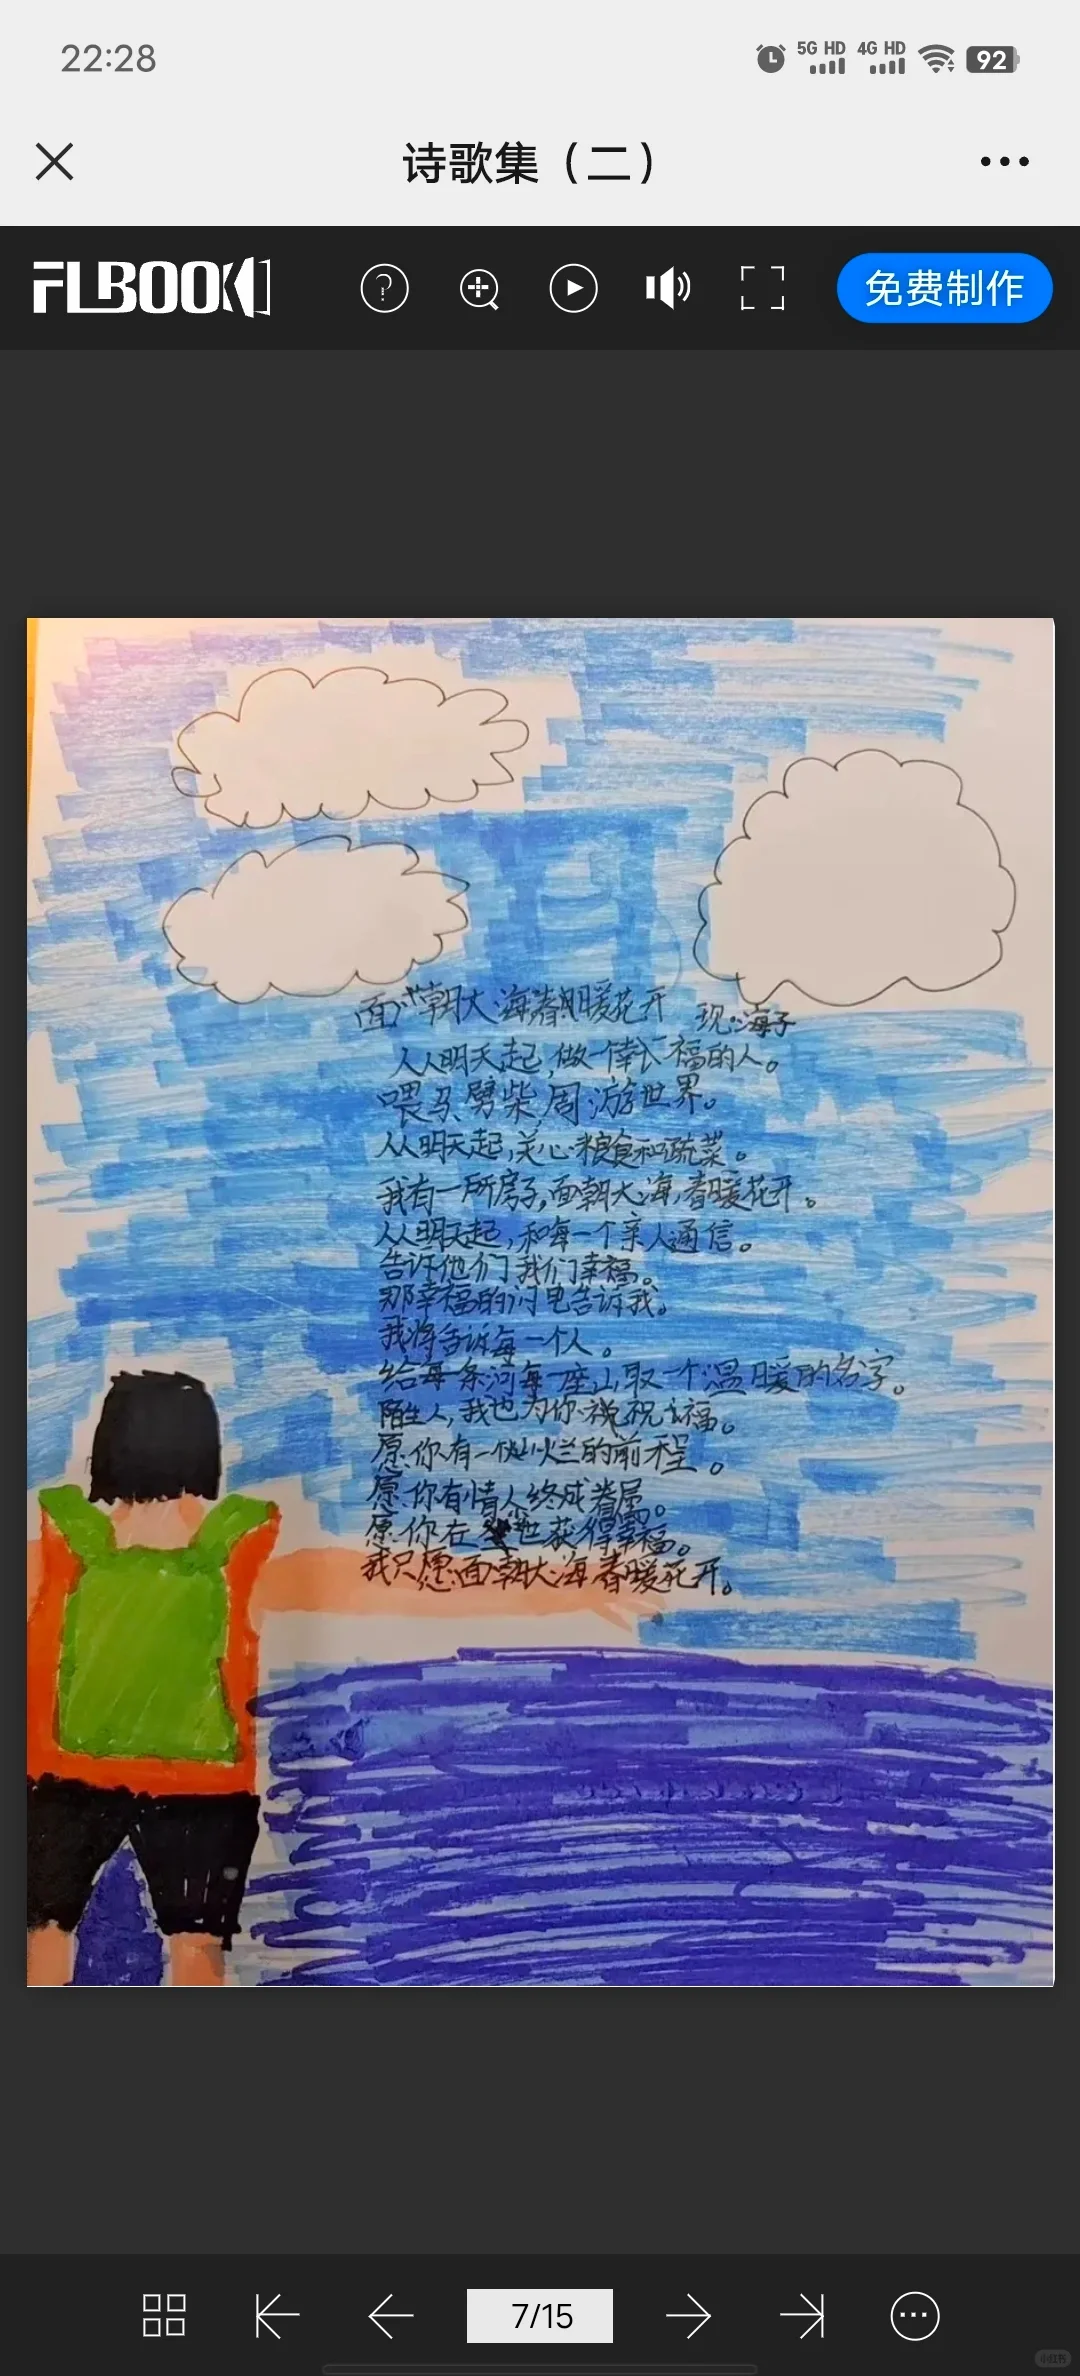 22:28
5G HD 4G HD 92
诗歌集（二）
FLBOOK
免费制作
面朝大海春暖花开 现:海子
从明天起,做一个幸福的人。
喂马、劈柴,周游世界。
从明天起,关心粮食和蔬菜。
我有一所房子,面朝大海,春暖花开。
从明天起,和每一个亲人通信。
告诉他们我们幸福。
那幸福的闪电告诉我。
我将告诉每一个人。
给每一条河每一座山取一个温暖的名字。
陌生人,我也为你祝福。
愿你有一个灿烂的前程。
愿你有情人终成眷属。
愿你在尘世获得幸福。
我只愿面朝大海春暖花开。
7/15
小红书